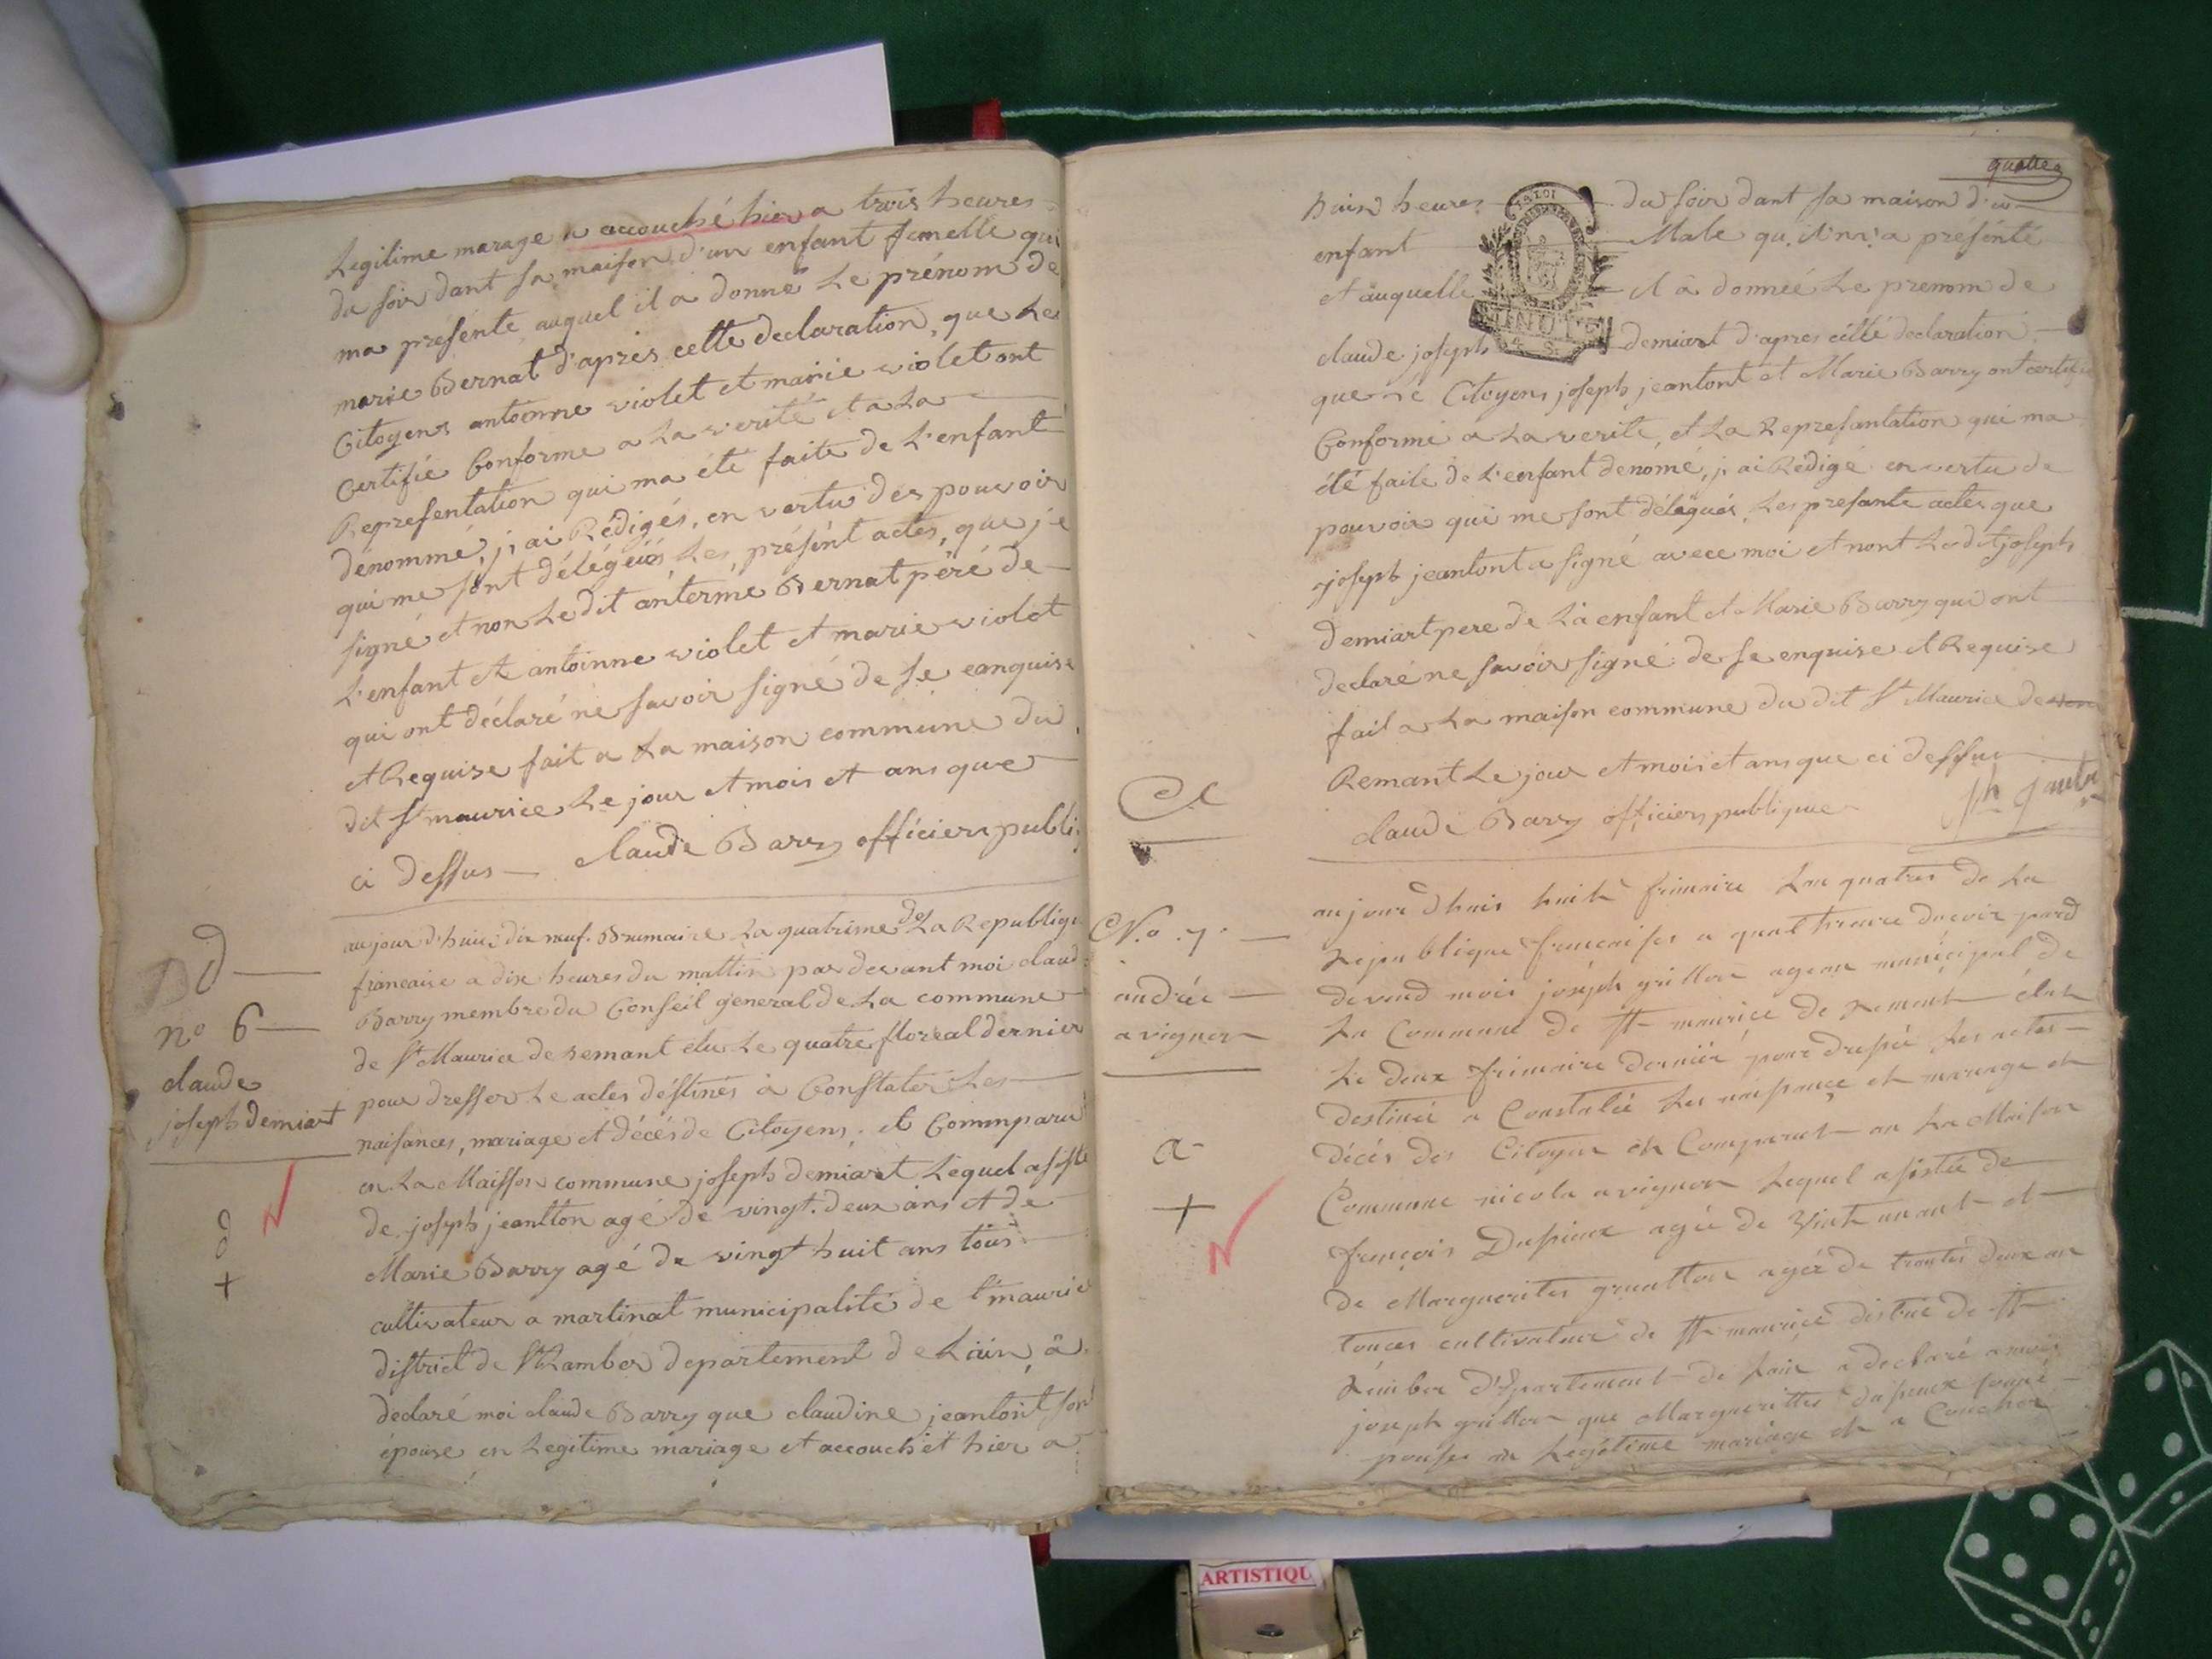 Legitime marage a accouché hier a trois heures
du soir dant sa maison d'un enfant femelle qui
ma présénte auquel il a donné Le prénom de
marie Bernat d'après cette declaration, que Les
Citoyens antoinne violet et marie violet ont
Certifié Conforme a La verité et a La
Representation qui ma été faite de L'enfant
dénommé, j, ai Rédigés, en vertu des pouvoir
qui me sont délégués Les, présént actes, que je
signé et non Le dit anterme Bernat péré de
L'enfant et antoinne violet et marie violet
qui ont déclaré ne savoir signé de se eanquise
et Requise fait a La maison commune du
dit St maurice Le jour et mois et ans que
ci dessus — claude Barry officiers publi
D d
no 6
claude
joseph demiart
d
+
aujour d'huis dix neuf. Brumaire La quatrime de La Republique
francaise a dix heures du mattin par devant moi claud
Barry membre du Conseil géneral de La commune
de St Maurice de Remant elu Le quatre floreal dernier
pour dresser Le actes déstinés à Constater Les
naisances, mariage et décés de Citoyens, et Commparu
en La Maisson commune joseph demiart Lequel asiste
de joseph jeantton agé de vingt. deux ans et de
Marie Barry agé de vingt huit ans tous
cultivateur a martinat municipalité de St maurice
district de St Ramber departement de Lain, à
declaré moi claude Barry que claudine jeantont son
épouse en Legitime mariage et accouchét hier a
quatre
heures du soir dant sa maison d'u
enfant Male qu, il m'a présénté
et auquelle il à donnée Le prenom de
LA LOI
MINUTE
claude joseph demiart d'apres cétté declaration
que Le Citoyens joseph jeantont et Marie Barry ont certifié
Conforme a La verite, et La Represantation qui ma
été faite de L'enfant denomé, j, ai Rédigé en vertu de
pouvoir qui me sont délégués, Les presante actes que
joseph jeantont a signé avece moi et nont Ledit joseph
demiart pere de La enfant et Marie Barry qui ont
declaré ne savoir signé de se enquise et Requise
fait a La maison commune du dit St Maurice de
Remant Le jour et mois et ans que ci dessus
claude Barry officiers publique
Cl
No. 7.
andrée
avignon
a
+
aujour dhuis huit frimaire Lan quatres de La
Republique francaises a quat heure du soir pard
devand mois joseph grillon agean municipal de
La Commune de St maurice de Remant élut
Le deux frimaire dernier pour dressé Les actes
destinée a Constatée Les naissance et mariage et
décés des Citoyen et Comparut an La Maison
Commune nicola avignon Lequel asistée de
françois Dupieux agée de Vint et
de Marguerites agée de trantes deux an
touces cultivateur de St maurice distric de St
Rember D'Epartement de Lain a declaré a mois
joseph grillon que Marguerittes dupieux
pouse an Legétime mariage et a Coucher